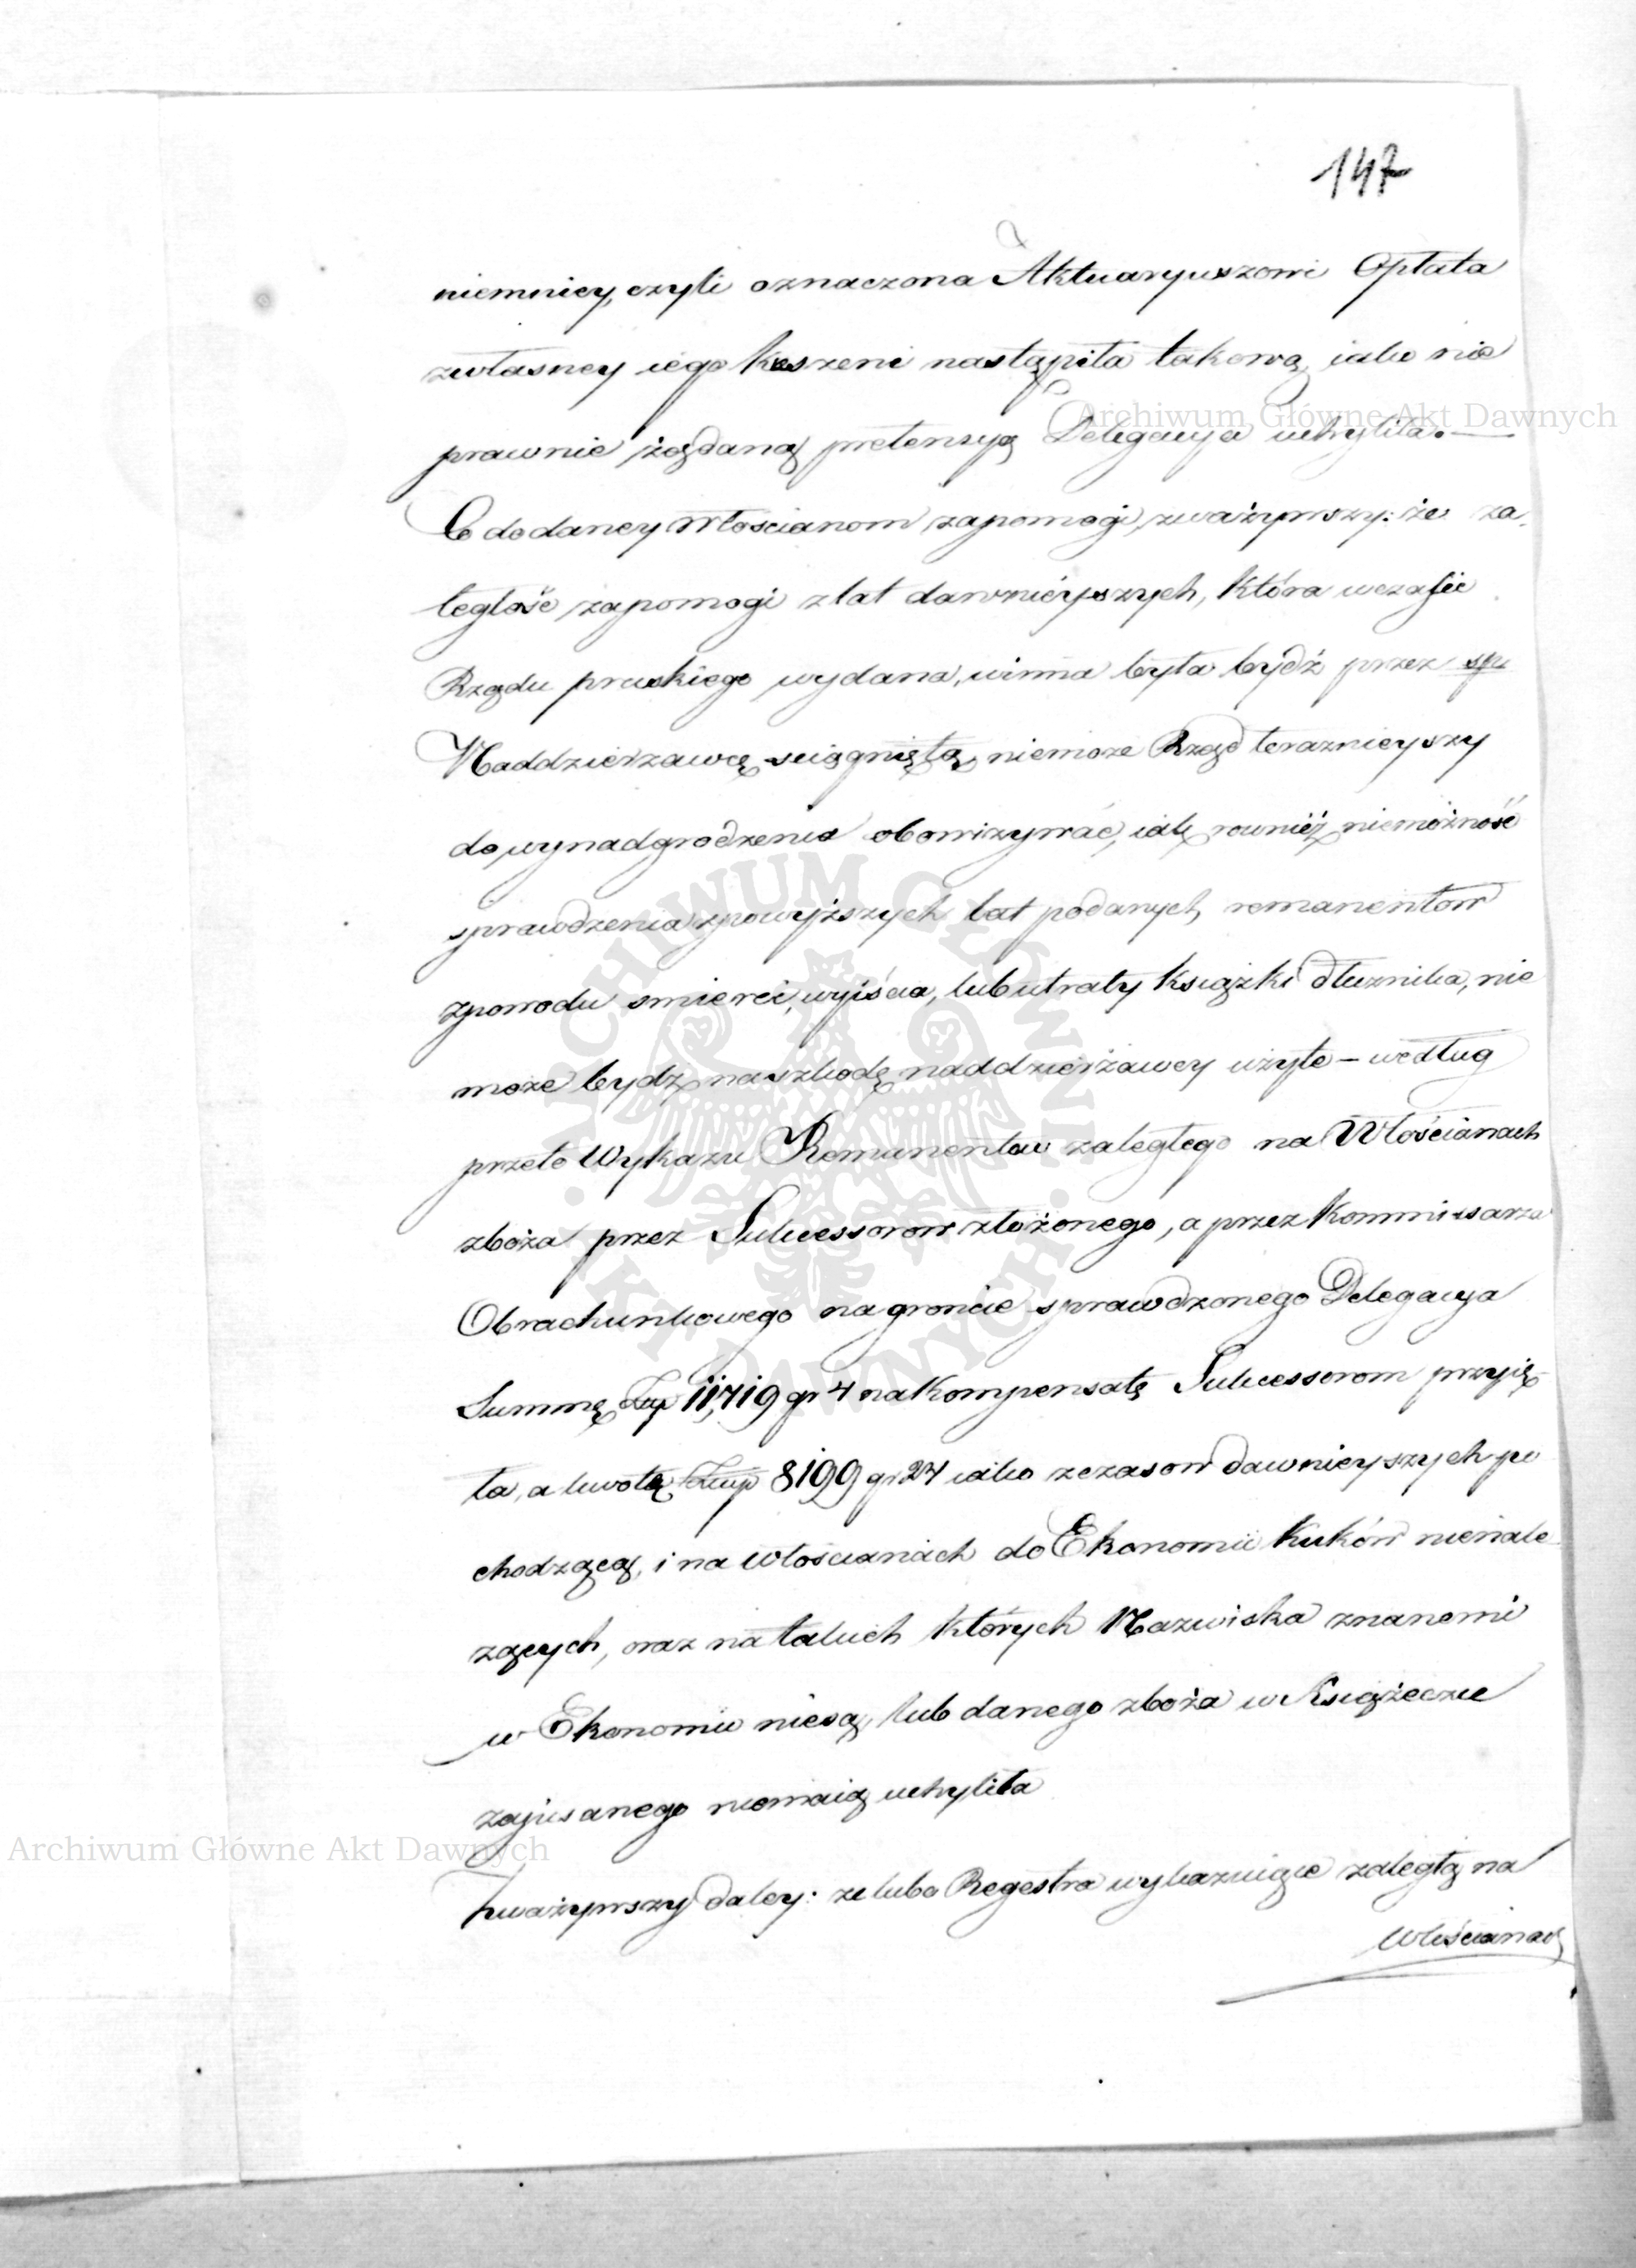 147
niemniey, czyli oznaczona Aktuaryuszowi Opłata
zwłasney iego kieszeni nastąpiła takową, iako nie
prawnie żądaną pretensyą Delegacya uchyliła. —
Co do daney Włościanom zapomogi, zważywszy: że za-
ległość zapomogi z lat dawnieyszych, która wczasie
Rządu pruskiego wydana, winna była bydź przez
Naddzierżawcę ściągniętą, niemoże Rząd teraznieyszy
do wynadgrodzenia obowiązywać, iak rownież niemożność
sprawdzenia zpowyższych lat podanych remanentow
zpowodu smierci, wyiścia, lub utraty książki dłuznika, nie
może bydz naszkodę naddzierżawcy użyte – według
przeto Wykazu Remanentu zaległego na Włościanach
zboża przez Sukcessorow złożonego, a przez Kommissarza
Obrachunkowego na groncie sprawdzonego Delegacya
Summę Złp 11,719 gr 4 na kompensatę Sukcessorom przyię-
ta, a kwotę Złp 8199 gr 24 iako zczasow dawnieyszych po
chodzącą, i na włoscianach do Ekonomii Kuków nienale
zących, oraz na takich których Nazwiska znanemi
w Ekonomii niesą, lub danego zboża w Książeczce
zapisanego niemaią uchyliła
Zważywszy daley: ze lubo Regestra wykazuiące zaległą na
Włościanach
Archiwum Główne Akt Dawnych
ARCHIWUM GŁÓWNE AKT DAWNYCH
Archiwum Główne Akt Dawnych